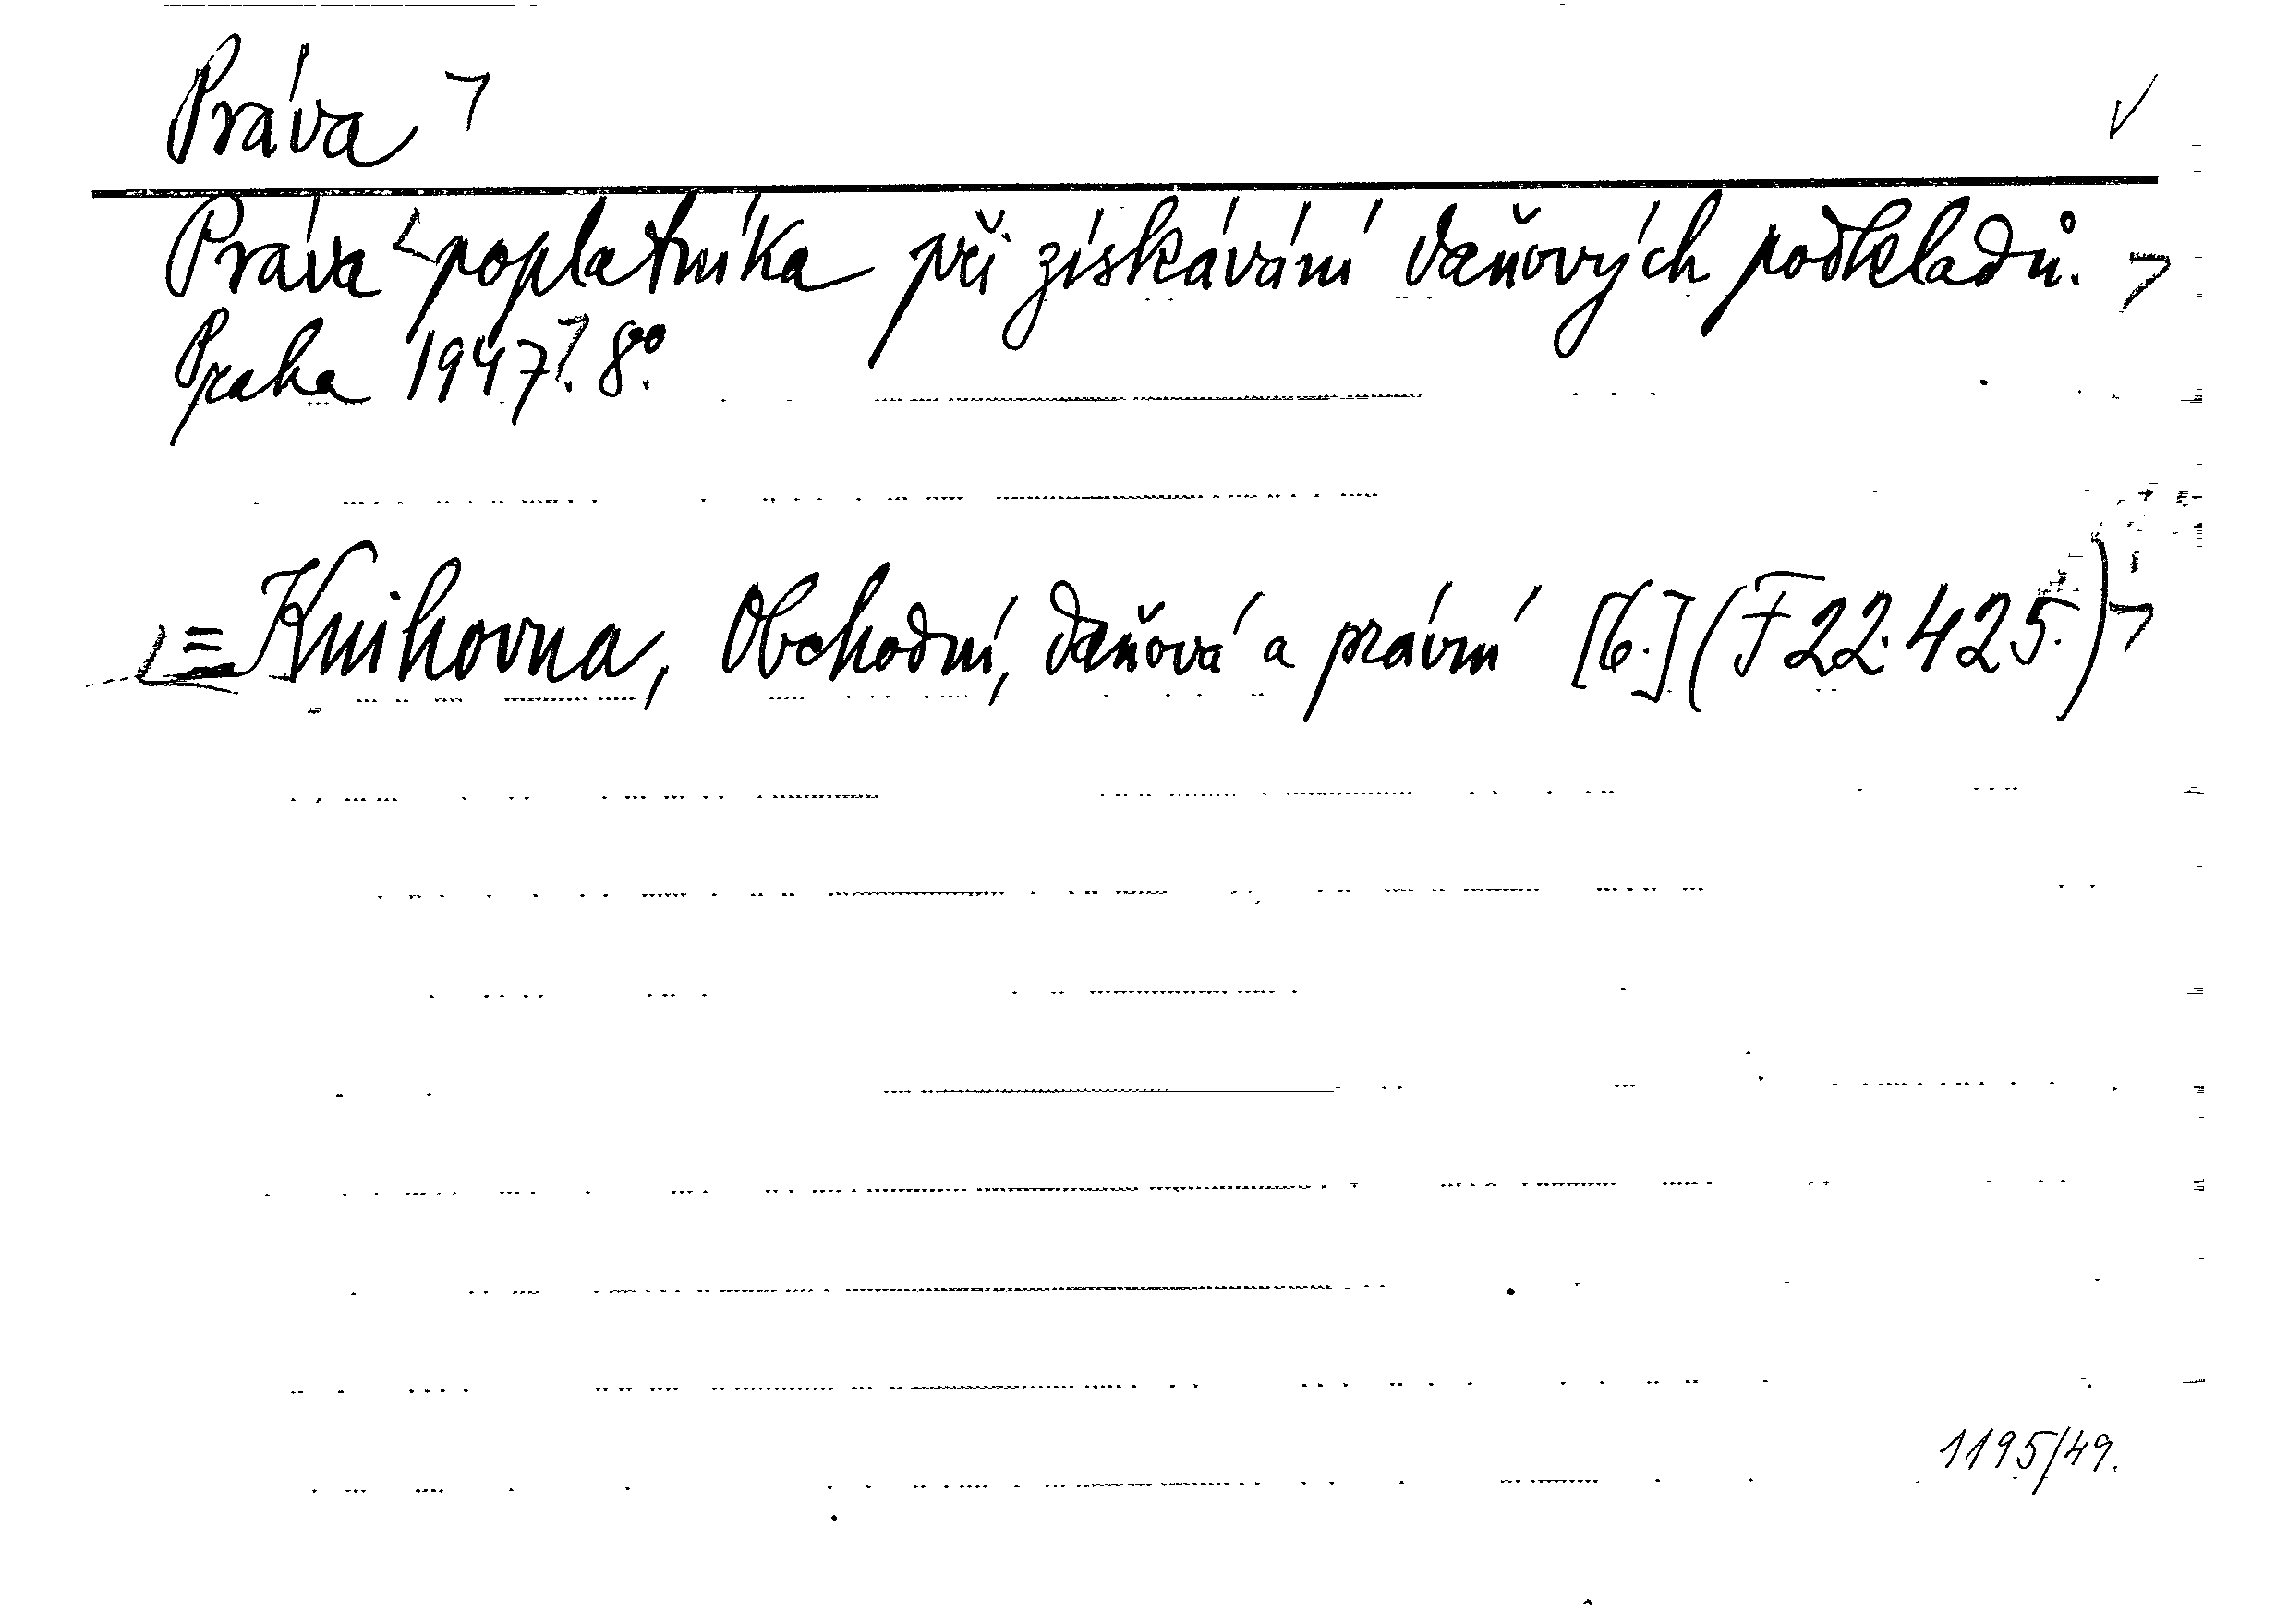 Práva
Práva poplatníka při získávání daňových podkladů.
Praha 1947. 8°.
= Knihovna, Obchodní, daňová a právní [6.] (F 22.425.)
1195/49.